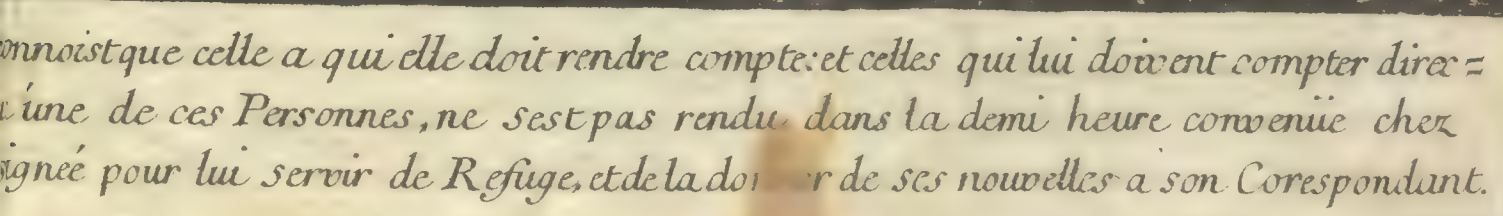 onnoist que celle a qui elle doit rendre compte: et celles qui lui doivent compter direc=
une de ces Personnes, ne sest pas rendu dans la demi heure convenüe chez
ignée pour lui servir de Refuge, et de la do r de ses nouvelles a son Corespondant.